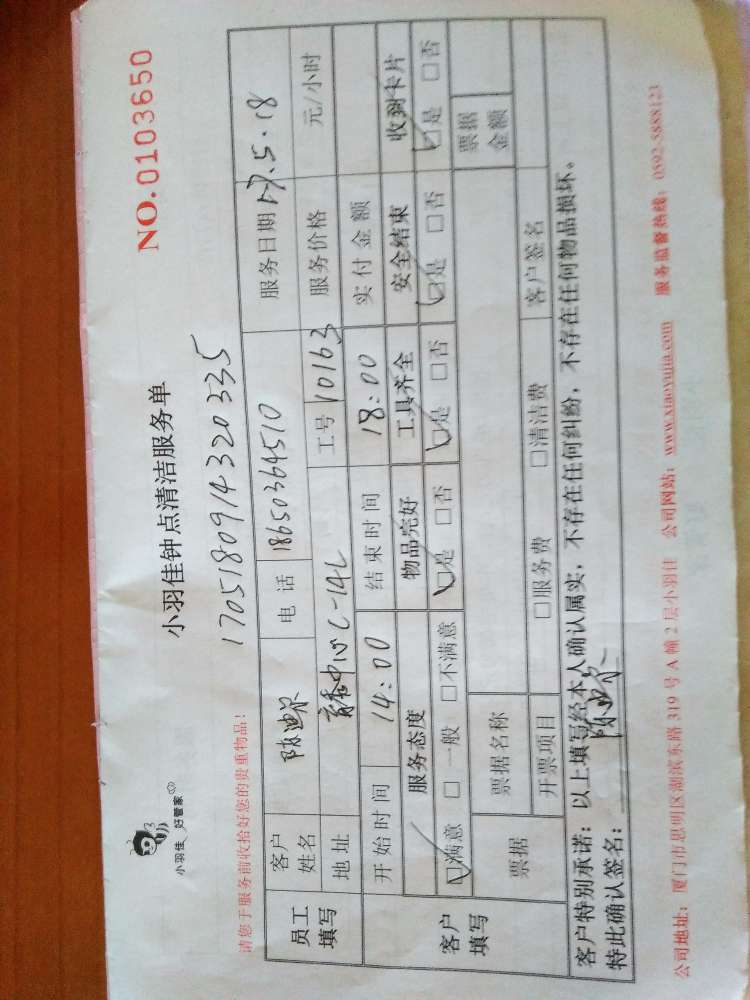 小羽佳 好管家
小羽佳钟点清洁服务单
NO.0103650
170518091432033 5
请您于服务前收拾好您的贵重物品!
员工填写 客户姓名 陈迪尔 电话 18650364510 服务日期 17.5.18
地址 中心C-14L 工号 10163 服务价格 元/小时
客户填写 开始时间 14:00 结束时间 18:00 实付金额
服务态度 物品完好 工具齐全 安全结束 收到卡片
☑满意 □一般 □不满意 ☑是 □否 ☑是 □否 ☑是 □否 ☑是 □否
票据 票据名称 票据金额
开票项目 □服务费 □清洁费 客户签名
客户特别承诺:以上填写经本人确认属实,不存在任何纠纷,不存在任何物品损坏。
特此确认签名:陈迪尔
公司地址:厦门市思明区湖滨东路 319 号 A 幢 2 层小羽佳 公司网站:www.xiaoyujia.com 服务监督热线:0592-5888123